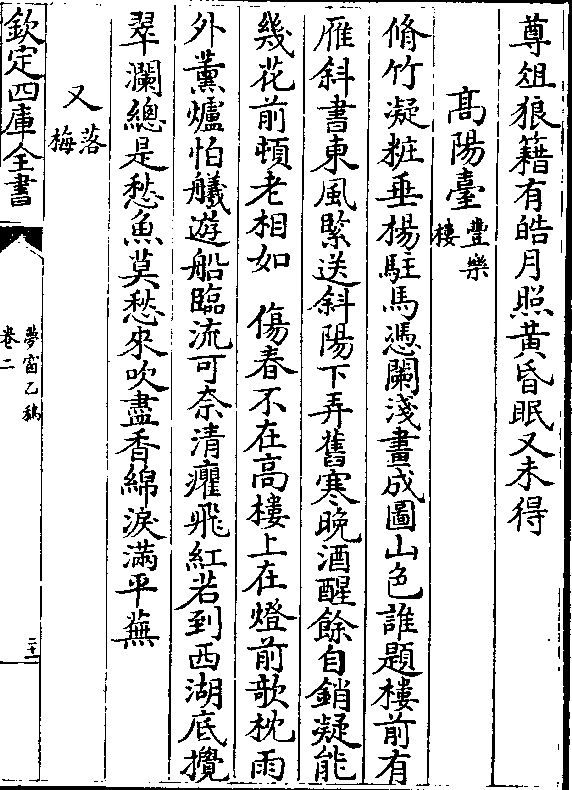 尊俎狼籍有皓月照黃昏眠又未得
高陽臺 豐樂樓
脩竹凝粧垂楊駐馬憑闌淺畫成圖山色誰題樓前有
雁斜書東風緊送斜陽下弄舊寒晚酒醒餘自銷凝能
幾花前頓老相如 傷春不在高樓上在燈前欹枕雨
外薰爐怕艤遊船臨流可奈清癯飛紅若到西湖底攪
翠瀾總是愁魚莫愁來吹盡香綿淚滿平蕪
又 落梅
欽定四庫全書
夢窗乙稿
卷二
二十